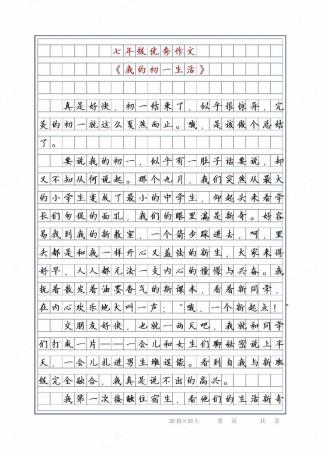 七年级优秀作文
《我的初一生活》
真是好快，初一结束了，似乎很惊异，完
美的初一就这么戛然而止。哦，是该做个总结
了。
要说我的初一，似乎有一肚子话要说，却
又不知从何说起。那个九月，我们突然从最大
的小学生变成了最小的中学生，仰起头来看学
长们匆促的面孔，我们的眼里满是新奇。好容
易我到我的新教室，一个箭步踩进去，呵，里
头都是和我一样开心又羞怯的新生，大家来得
好早，人人都无法一支内心的憧憬与兴奋。我
抚着散发着油墨香气的新课本，看着新同学，
在内心欢乐地大叫一声：“哦，一个新起点！”
交朋友好快，也就一两天吧，我就和同学
们打成一片——一会儿和女生们聊韶雷说上半
天，一会儿扎进男生堆逞能。看到自我与新班
级完全融合，我真是说不出的高兴。
我第一次接触住宿生，看他们的生活新奇
20格×20行 第 页 共 页